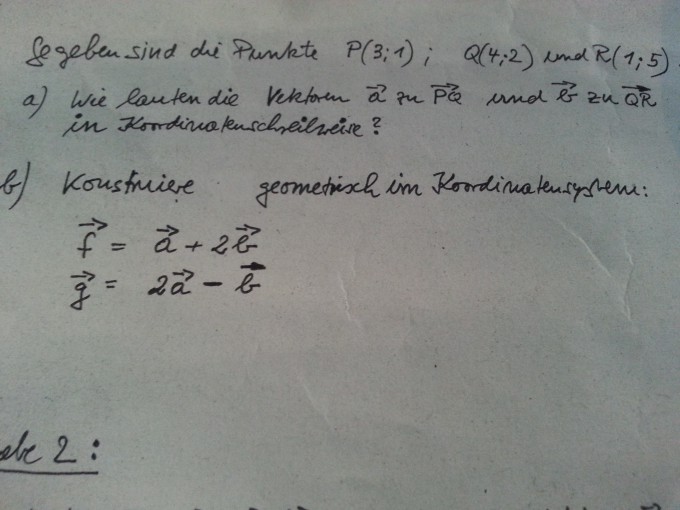 Gegeben sind die Punkte P(3;1); Q(4;2) und R(1;5).
a) Wie lauten die Vektoren a⃗ zu P͞Q⃗ und b⃗ zu Q͞R⃗
in Koordinatenschreibweise?
b) Konstruiere geometrisch im Koordinatensystem:
f⃗ = a⃗ + 2b⃗
g⃗ = 2a⃗ - b⃗
abe 2: